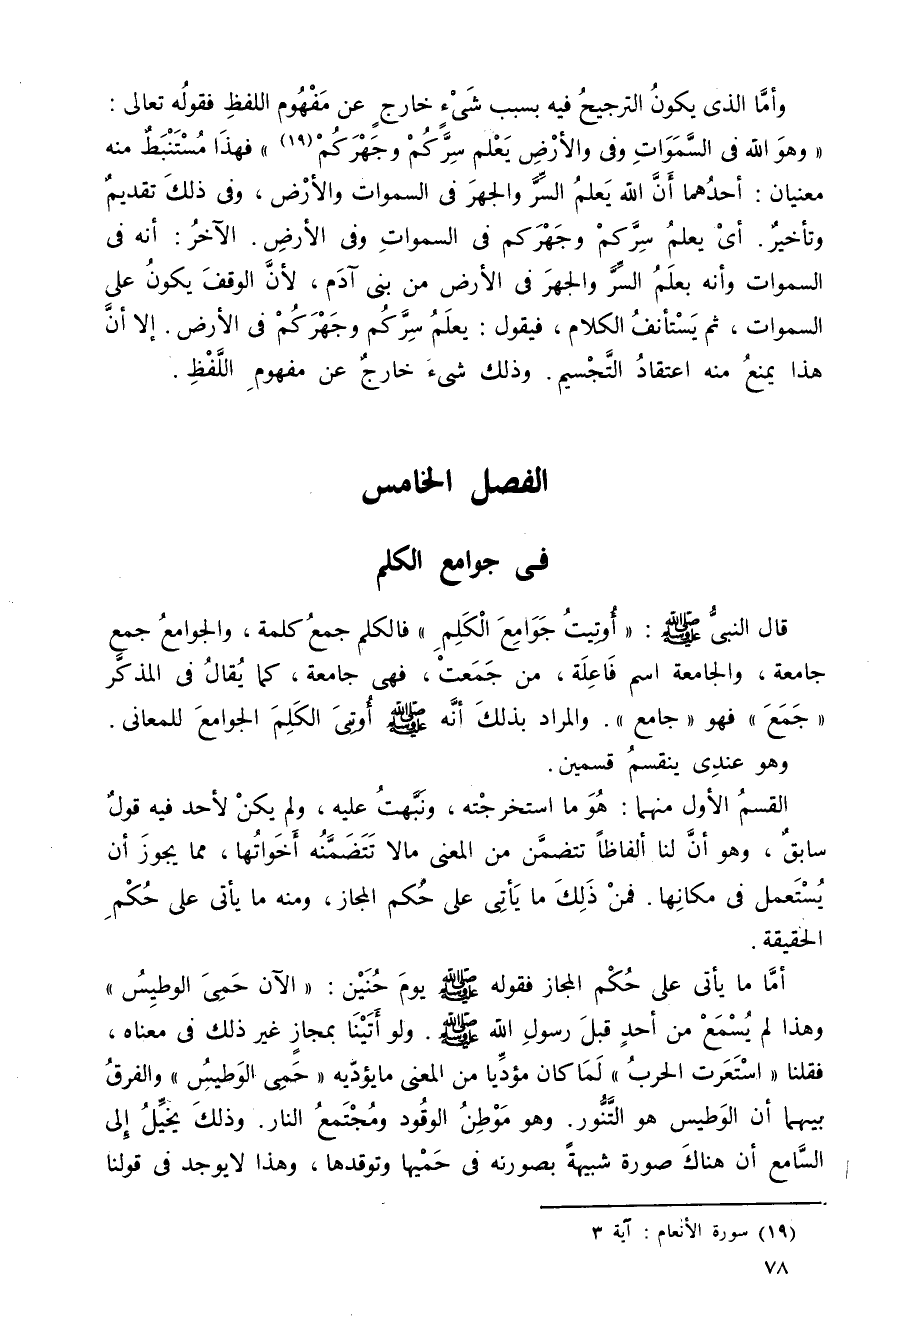 وأمَّا الذى يكونُ الترجيحُ فيه بسبب شَىْءٍ خارجٍ عن مَفْهُوم اللفظِ فقولُه تعالى :
« وهوَ الله فى السَّمَوَاتِ وفى والأرْضِ يَعْلم سِرَّكُمْ وجَهْرَكُمْ (١٩) » فهذَا مُسْتَنْبَطٌ منه
معنيان : أحدُهما أنَّ الله يَعلمُ السرَّ والجهرَ فى السموات والأرْض ، وفى ذلكَ تقديمٌ
وتأخيرٌ . أىْ يعلمُ سِرَّكمْ وجَهْرَكم فى السمواتِ وفى الأرضِ . الآخرُ : أنه فى
السموات وأنه بعلَمُ السرَّ والجهرَ فى الأرض من بنى آدَم ، لأنَّ الوقفَ يكونُ على
السموات ، ثم يَسْتأنفُ الكلام ، فيقول : يعلَمُ سِرَّكُم وجهْرَكُمْ فى الأرض . إلا أنَّ
هذا يمنعُ منه اعتقادُ التَّجْسيم . وذلك شىءَ خارجٌ عن مفهومِ اللَّفْظِ .
الفصل الخامس
فى جوامع الكلم
قال النبىُّ ﷺ : « أُوتِيتُ جَوَامِعَ الْكَلِمِ » فالكلم جمعُ كلمة ، والجوامعُ جمع
جامعة ، والجامعة اسم فَاعِلَة ، من جَمَعَتْ ، فهى جامعة ، كما يُقالُ فى المذكَّر
« جَمَعَ » فهو « جامع » . والمراد بذلكَ أنَّه ﷺ أُوتِىَ الكَلِمَ الجوامعَ للمعانى .
وهو عندِى ينقسمُ قسمين .
القسمُ الأول منهما : هُوَ ما استخرجْته ، ونَبَّهتُ عليه ، ولم يكنْ لأحد فيه قولٌ
سابقٌ ، وهو أنَّ لنا ألفاظاً تتضمَّن من المعنى مالا تَتَضَمَّنُه أخَواتُها ، مما يجوزَ أن
يُسْتَعمل فى مكانِها . فمنْ ذَلِكَ ما يَأتِى على حُكم المجاز ، ومنه ما يأتى على حُكْمِ
الحقيقة .
أمَّا ما يأتى على حُكْم المجاز فقوله ﷺ يومَ حُنَيْن : « الآن حَمِىَ الوطيسُ »
وهذا لم يُسْمَعْ من أحدٍ قبلَ رسولِ الله ﷺ . ولو أَتَيْنَا بمجازٍ غير ذلك فى معناه ،
فقلنا « اسْتَعَرت الحربُ » لَمَا كان مؤدِّيا من المعنى مايؤدّيه « حَمِى الوَطيسُ » والفرقُ
بيهما أن الوَطيس هو التَّنُّور . وهو مَوْطِنُ الوقُود ومُجْتَمعُ النار . وذلكَ يخيِّلُ إلى
السَّامع أن هناكَ صورة شبيهةً بصورته فى حَمْيها وتوقدها ، وهذا لايوجد فى قولنا
(١٩) سورة الأنعام : آية ٣
٧٨